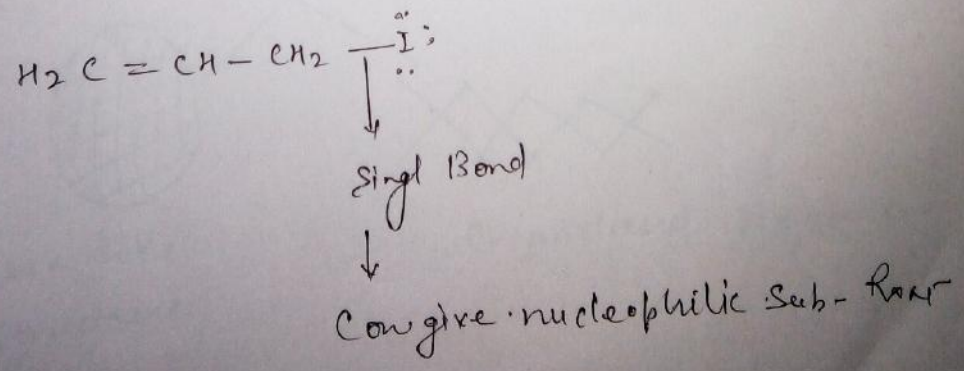 H2C = CH - CH2 - I
Singl Bond
Can give nucleophilic Sub-